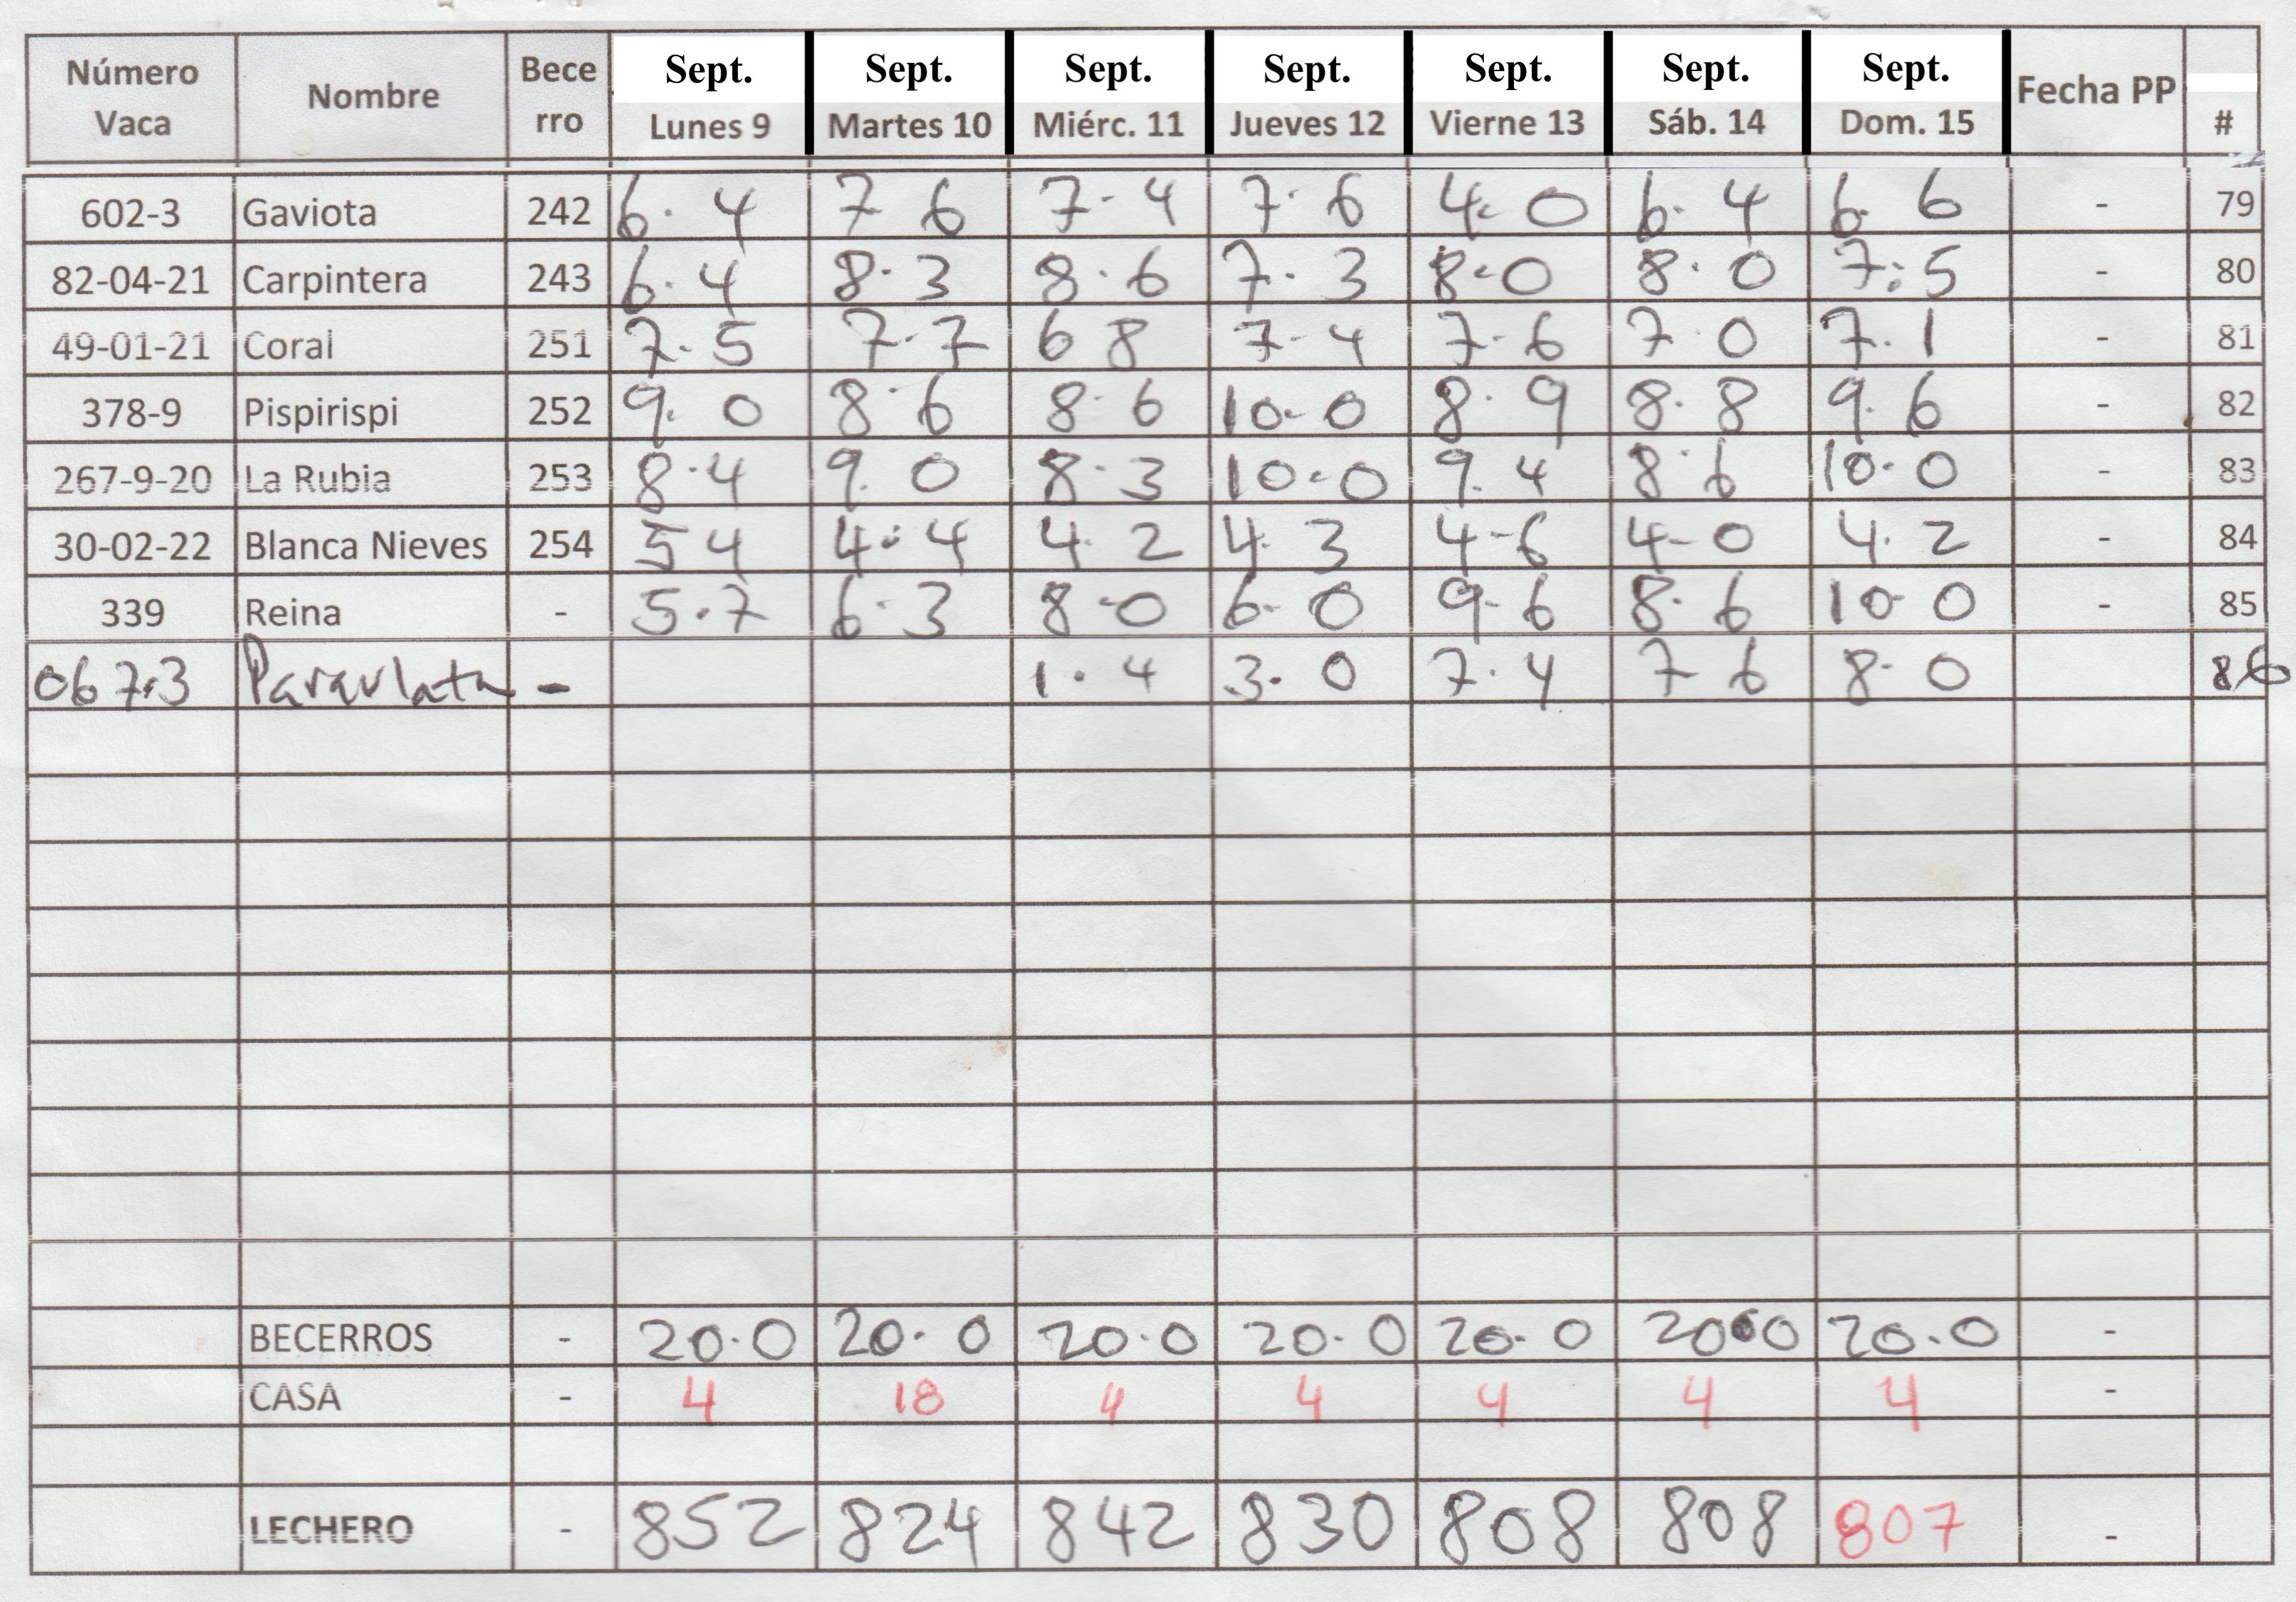 Número Vaca Nombre Bece rro Sept. Lunes 9 Sept. Martes 10 Sept. Miérc. 11 Sept. Jueves 12 Sept. Vierne 13 Sept. Sáb. 14 Sept. Dom. 15 Fecha PP #
602-3 Gaviota 242 6.4 7 6 7-4 7.6 4.0 6.4 6.6 - 79
82-04-21 Carpintera 243 6.4 8.3 8.6 7.3 8-0 8.0 7.5 - 80
49-01-21 Coral 251 7.5 7.7 6 8 7-4 7-6 7 0 7.1 - 81
378-9 Pispirispi 252 9.0 8.6 8.6 10-0 8.9 8.8 9.6 - 82
267-9-20 La Rubia 253 8.4 9.0 8.3 10.0 9.4 8.6 10.0 - 83
30-02-22 Blanca Nieves 254 5 4 4.4 4.2 4.3 4-6 4-0 4.2 - 84
339 Reina - 5.7 6.3 8-0 6-0 9-6 8.6 10-0 - 85
067.3 Paraulata - 1.4 3.0 7.4 7 6 8.0 86
BECERROS - 20.0 20.0 20.0 20.0 20.0 20.0 20.0 -
CASA - 4 18 4 4 4 4 4 -
LECHERO - 852 824 842 830 808 808 807 -